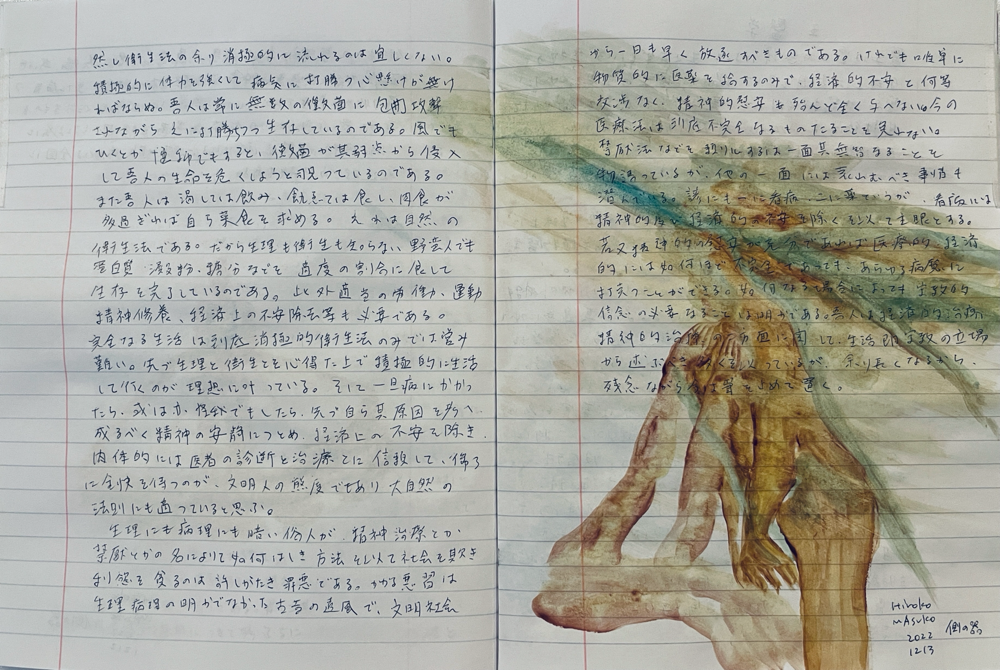 然し衛生法の余り消極的に流れるのは宜しくない。
積極的に体力を強くして病気に打勝つ心懸けが無け
ればならぬ。吾人は常に無数の黴菌に包囲攻撃
されながらえに打勝ちつつ生存しているのである。風でも
ひくとか怪我でもすると、黴菌が其弱点から侵入
して吾人の生命を危くしようと覗っているのである。
また吾人は渇しては飲み、飢えては食し、肉食が
多過ぎれば自ら菜食を求める。それは自然の
衛生法である。だから生理も衛生も知らない野蛮人でも
蛋白質・澱粉・糖分などを適度の割合に食して
生存を完了しているのである。上と外適当の労働、運動
精神修養、経済上の不安除去等も必要である。
完全なる生活は到底消極的衛生法のみでは営み
難い。先づ生理と衛生とを心得た上で積極的に生活
して行くのが理想に叶っている。そして一旦病にかかっ
たら、或はか怪我でもしたら、先づ自ら其原因を考へ
成るべく精神の安静につとめ、経済上の不安を除き、
肉体的には医者の診断と治療とに信頼して、偏に
に全快を待つのが、文明人の態度であり大自然の
法則にも適っていると思ふ。
生理にも病理にも暗い俗人が、精神治療とか
禁厭とかの名によりて如何はしき方法を以て社会を欺き
利慾を貪るのは許しがたき罪悪である。かかる悪習は
生理病理の明かでなかった古昔の遺風で、文明社会
から一日も早く放逐すべきものである。けれども唯単に
物質的に医薬を給するのみで、経済的不安と何等
交渉なく、精神的慰安も殆んど全く与へない今の
医療法は到底不完全なるものたることを免れない。
禁厭法などを頼りにするは一面其無智なることを
物語っているが、他の一面には哀れむべき事情も
潜んでいる。諺にも一に看病、二に薬というが、看病には
精神的及び経済的の不安を除くを以て主眼とする。
若又精神的の慰安が充分であれば医療的、経済
的には如何ほど不完全であっても、あらゆる病魔に
打克つことができる。如何なる場合に於ても宗教的
信念の必要なることは明かである。吾人は経済的治療、
精神的治療の方面に関して、生活即宗教の立場
から述ぶべき多くを持っているが、余り長くなるから、
残念ながら今は筆を止めて置く。
Hiroko
mAsuko
2022
1213
側の器